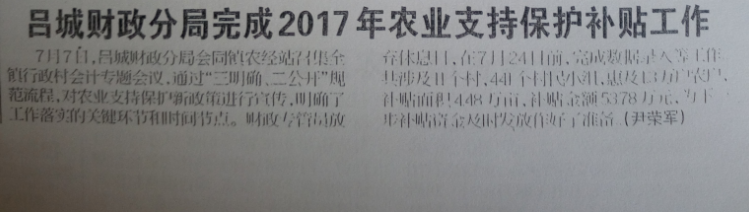 吕城财政分局完成2017年农业支持保护补贴工作
7月7日,吕城财政分局会同镇农经站召集全
镇行政村会计专题会议,通过“三明确、二公开”规
范流程,对农业支持保护新政策进行宣传,明确了
工作落实的关键环节和时间节点。财政专管员放
弃休息日,在7月24日前,完成数据录入等工作
共涉及11个村,441个村民小组,惠及1.3万户农户,
补贴面积4.48万亩,补贴金额537.8万元,为下
步补贴资金及时发放作好了准备。(尹荣军)